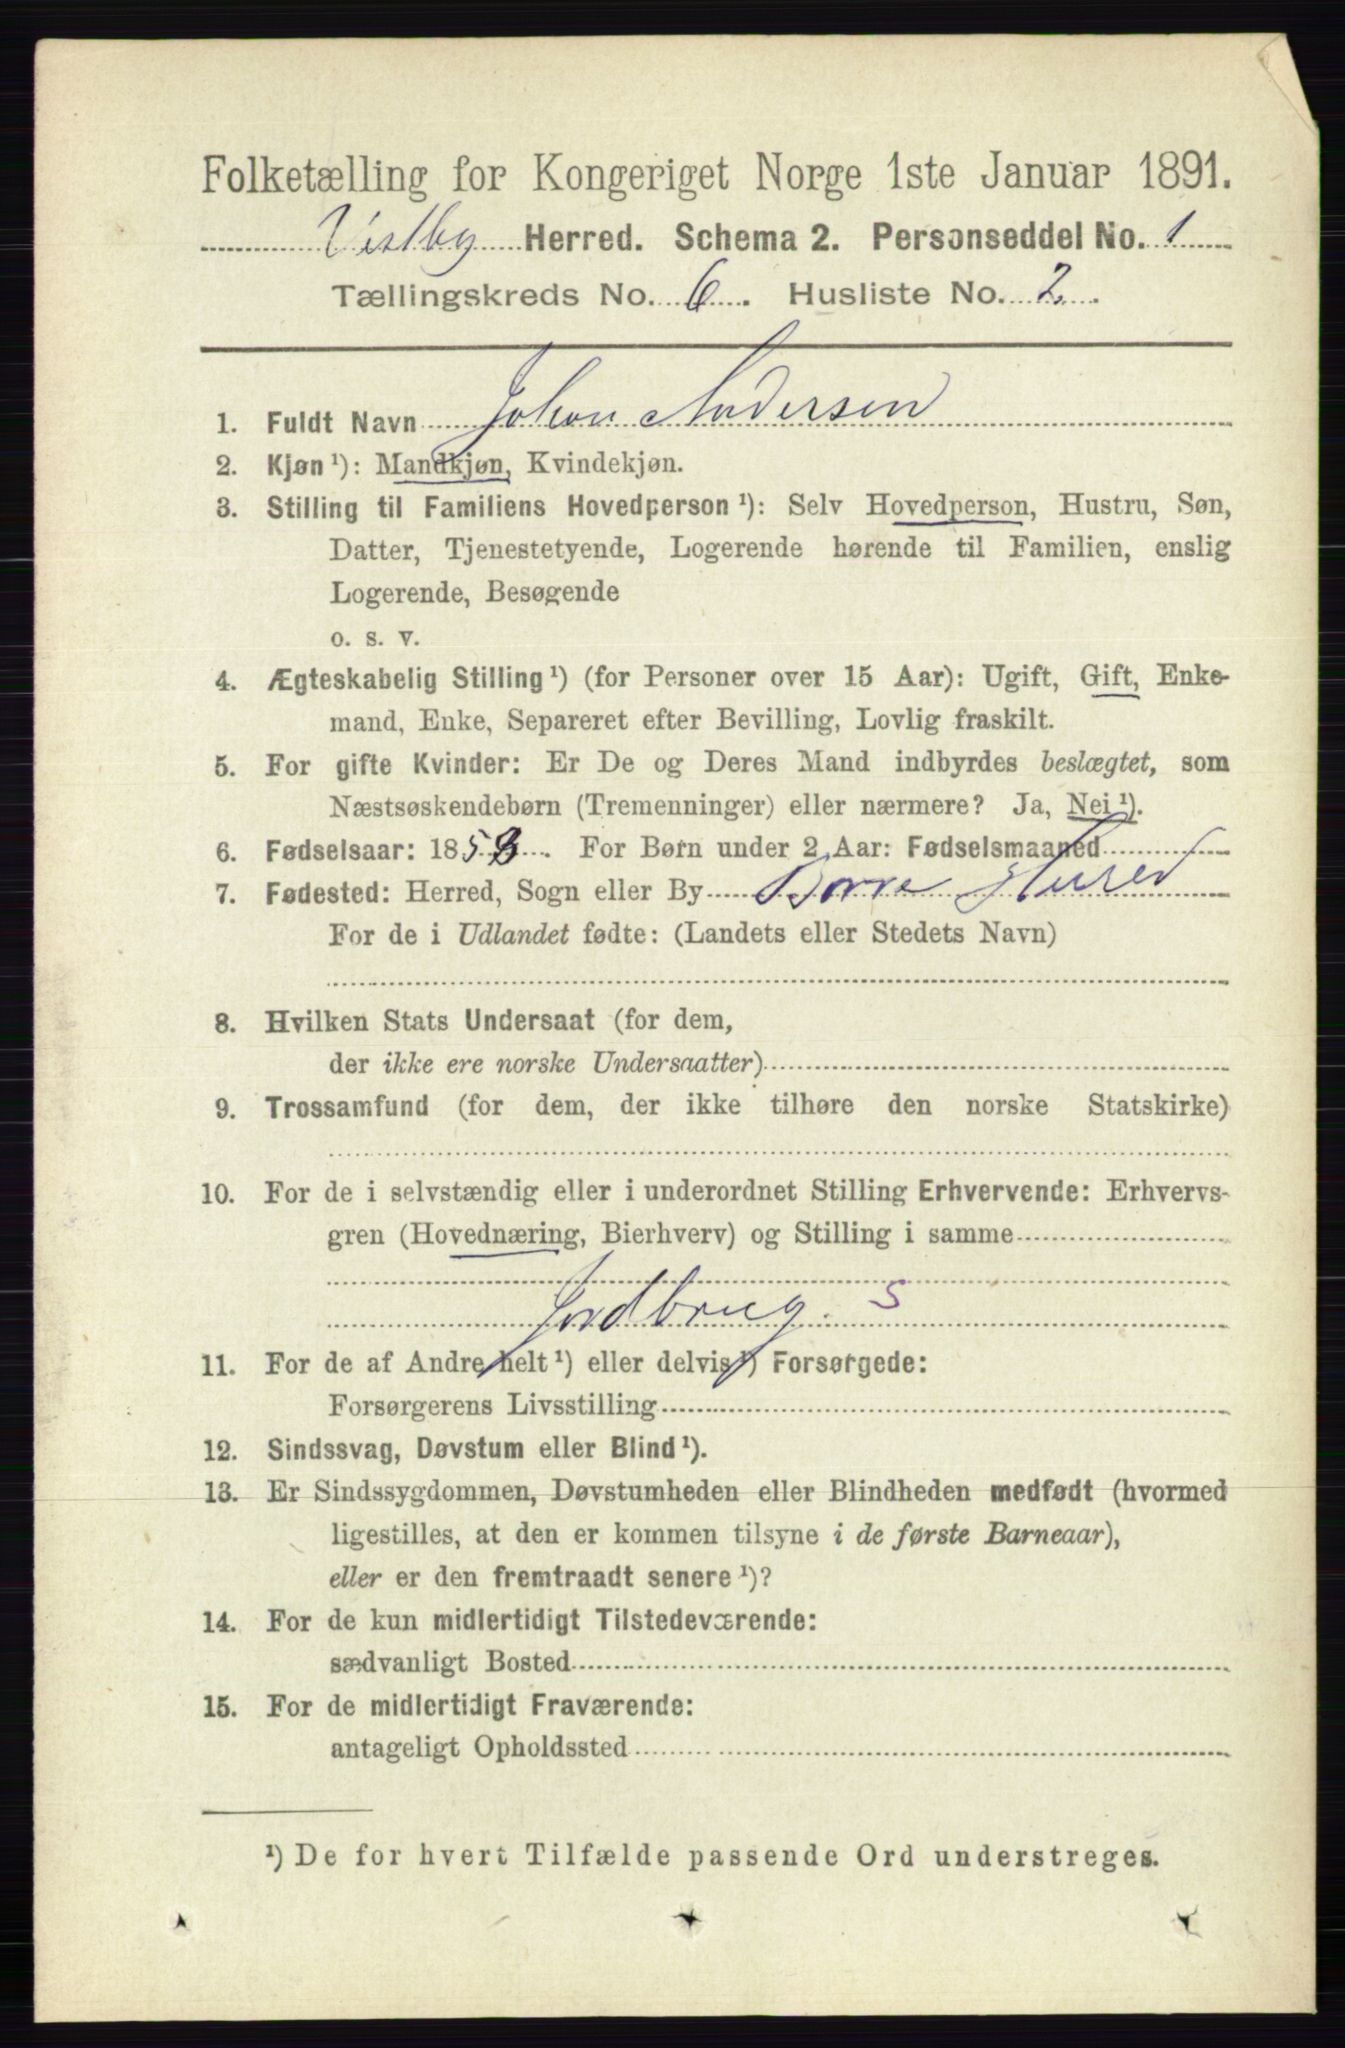 Folketælling for Kongeriget Norge 1ste Januar 1891.
Vestby Herred. Schema 2. Personseddel No. 1
Tællingskreds No. 6. Husliste No. 2.
1. Fuldt Navn Johan Andersen
2. Kjøn ¹): Mandkjøn, Kvindekjøn.
3. Stilling til Familiens Hovedperson ¹): Selv Hovedperson, Hustru, Søn,
Datter, Tjenestetyende, Logerende hørende til Familien, enslig
Logerende, Besøgende
o. s. v.
4. Ægteskabelig Stilling ¹) (for Personer over 15 Aar): Ugift, Gift, Enke-
mand, Enke, Separeret efter Bevilling, Lovlig fraskilt.
5. For gifte Kvinder: Er De og Deres Mand indbyrdes beslægtet, som
Næstsøskendebørn (Tremenninger) eller nærmere? Ja, Nei ¹).
6. Fødselsaar: 1858. For Børn under 2 Aar: Fødselsmaaned
7. Fødested: Herred, Sogn eller By Borre Hered
For de i Udlandet fødte: (Landets eller Stedets Navn)
8. Hvilken Stats Undersaat (for dem,
der ikke ere norske Undersaatter)
9. Trossamfund (for dem, der ikke tilhøre den norske Statskirke)
10. For de i selvstændig eller i underordnet Stilling Erhvervende: Erhvervs-
gren (Hovednæring, Bierhverv) og Stilling i samme
Jordbrug. S
11. For de af Andre helt ¹) eller delvis ¹) Forsørgede:
Forsørgerens Livsstilling
12. Sindssvag, Døvstum eller Blind ¹).
13. Er Sindssygdommen, Døvstumheden eller Blindheden medfødt (hvormed
ligestilles, at den er kommen tilsyne i de første Barneaar),
eller er den fremtraadt senere ¹)?
14. For de kun midlertidigt Tilstedeværende:
sædvanligt Bosted
15. For de midlertidigt Fraværende:
antageligt Opholdssted
¹) De for hvert Tilfælde passende Ord understreges.